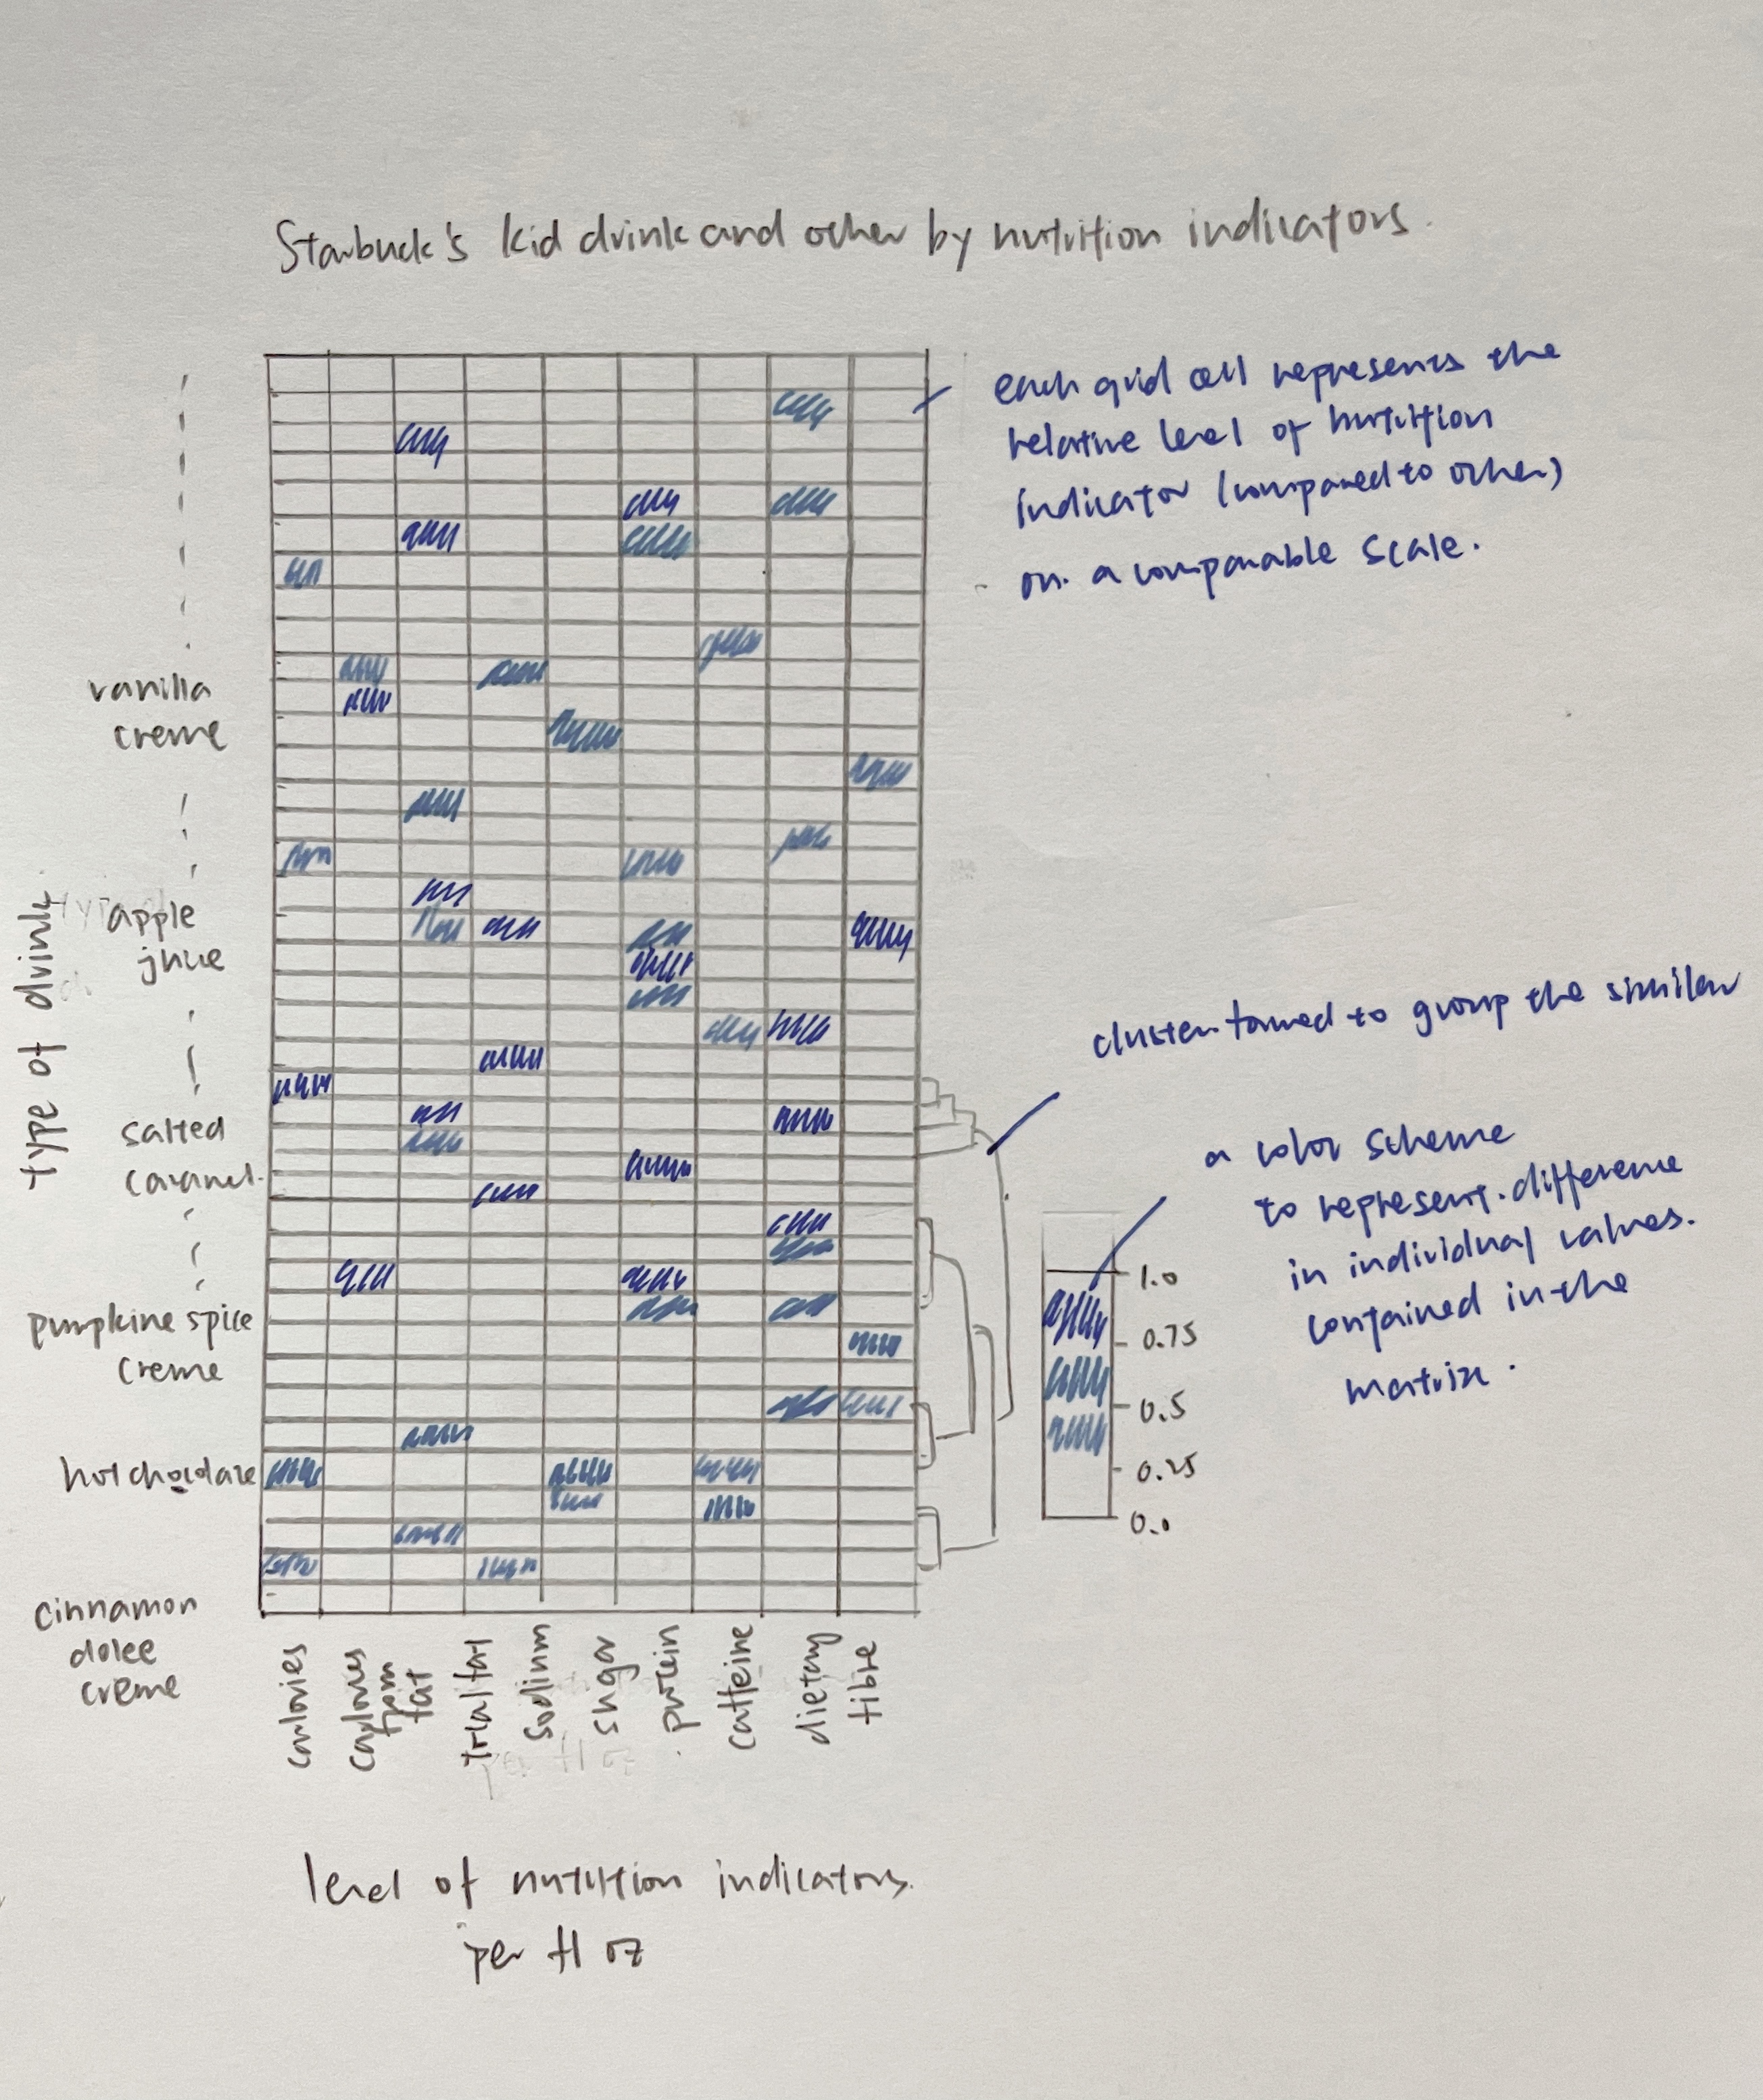 Starbuck's kid drink and other by nutrition indicators.
each grid cell represents the
relative level of nutrition
indicator (compared to other)
on a comparable scale.
vanilla
creme
type of drink
apple
juice
cluster formed to group the similar
salted
caramel.
a color scheme
to represent difference
in individual values.
contained in the
matrix.
1.0
0.75
0.5
0.25
0.0
pumpkine spice
creme
hot chocolate
cinnamon
dolce
creme
calories
calories
from
fat
total fat
sodium
sugar
protein
caffeine
dietary
fibre
level of nutrition indicators.
per fl oz
per fl oz